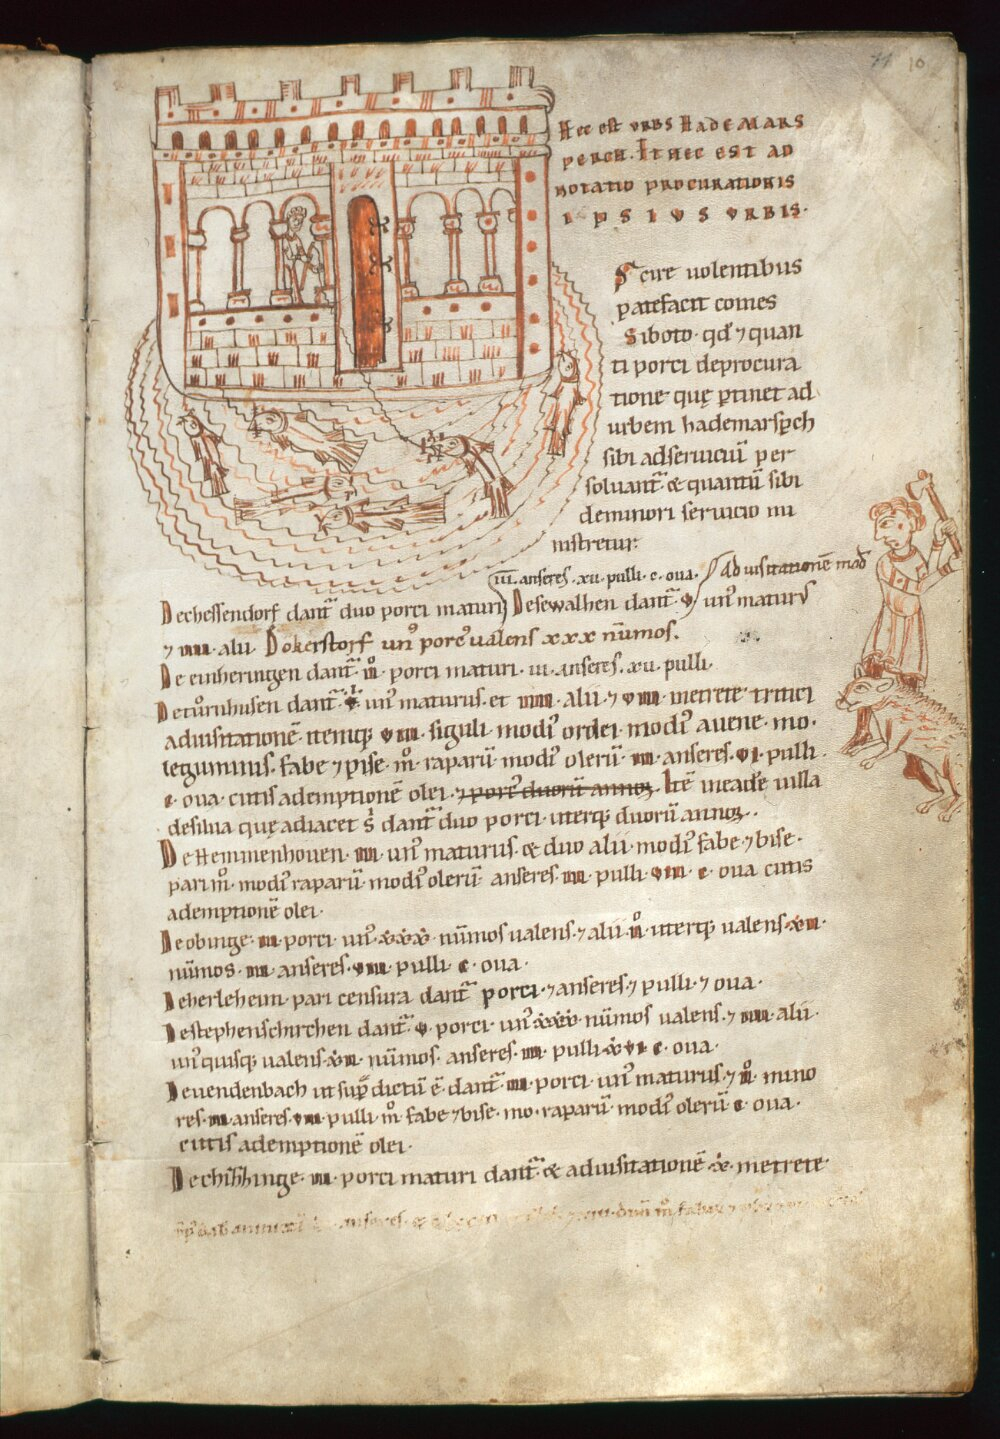 11 10
Hec est urbs Hademars
perch. It hec est ad
notatio procurationis
ipsius urbis.
Scire uolentibus
patefacit comes
Siboto. qd ⁊ quan
ti porci de procura
tione quę ptinet ad
urbem hademarspch
sibi ad seruiciū per
soluant̄ & quantū sibi
de minori seruicio mi
nistretur.
iii. anseres. xii. pulli. c. oua. Ad uisitationē mod
De chessendorf dant̄ duo porci maturi De sewalhen dant̄ v un᾽ maturus
⁊ iiii. alii. De kerstorf un᾽ porc᾽ ualens xxx nūmos.
De einheringen dant̄ porci maturi. iii. anseres. xii. pulli.
De tůrnhusen dant̄ v. un᾽ maturus. et iiii. alii. ⁊ viii. metrete tritici
ad uisitationē. itemq; viii. siguli. modi᾽ ordei. modi᾽ auene. mo.
leguminis. fabe ⁊ pise. raparū modi᾽ olerū. iii. anseres. vi. pulli.
c. oua. cutis ademptionē olei. ⁊ porc᾽ duorū annoꝝ. Itē uilla
de silua quę adiacet dant̄ duo porci. uterq; duorū annoꝝ.
De Hemmenhouen. iii. un᾽ maturus. & duo alii. modi᾽ fabe ⁊ bise.
pari m̊. modi᾽ raparū. modi᾽ olerū. anseres. iii. pulli. viii. c. oua cutis
ademptionē olei.
De obinge. iii. porci. un᾽ xxx nūmos ualens. ⁊ alii. ii. uterq; ualens. xii.
nūmos. iii. anseres. viii. pulli. c. oua.
De herleheim. pari censura dant̄ porci. ⁊ anseres. ⁊ pulli. ⁊ oua.
De stephenschirchen dant̄. v. porci. un᾽ xxx nūmos ualens. ⁊ iiii. alii.
un᾽quisq; ualens. xii. nūmos. anseres. iii. pulli. xvi. c. oua.
De uendenbach ut sup̄ dictū ē. dant̄. iii. porci. un᾽ maturus. ⁊ ii. mino
res. iii. anseres. viii. pulli. m̊. fabe ⁊ bise. mo. raparū. modi᾽ olerū. c. oua.
cutis ademptionē olei.
De chihhinge. iii. porci maturi dant̄. & ad uisitationē. x. metrete
anseres.